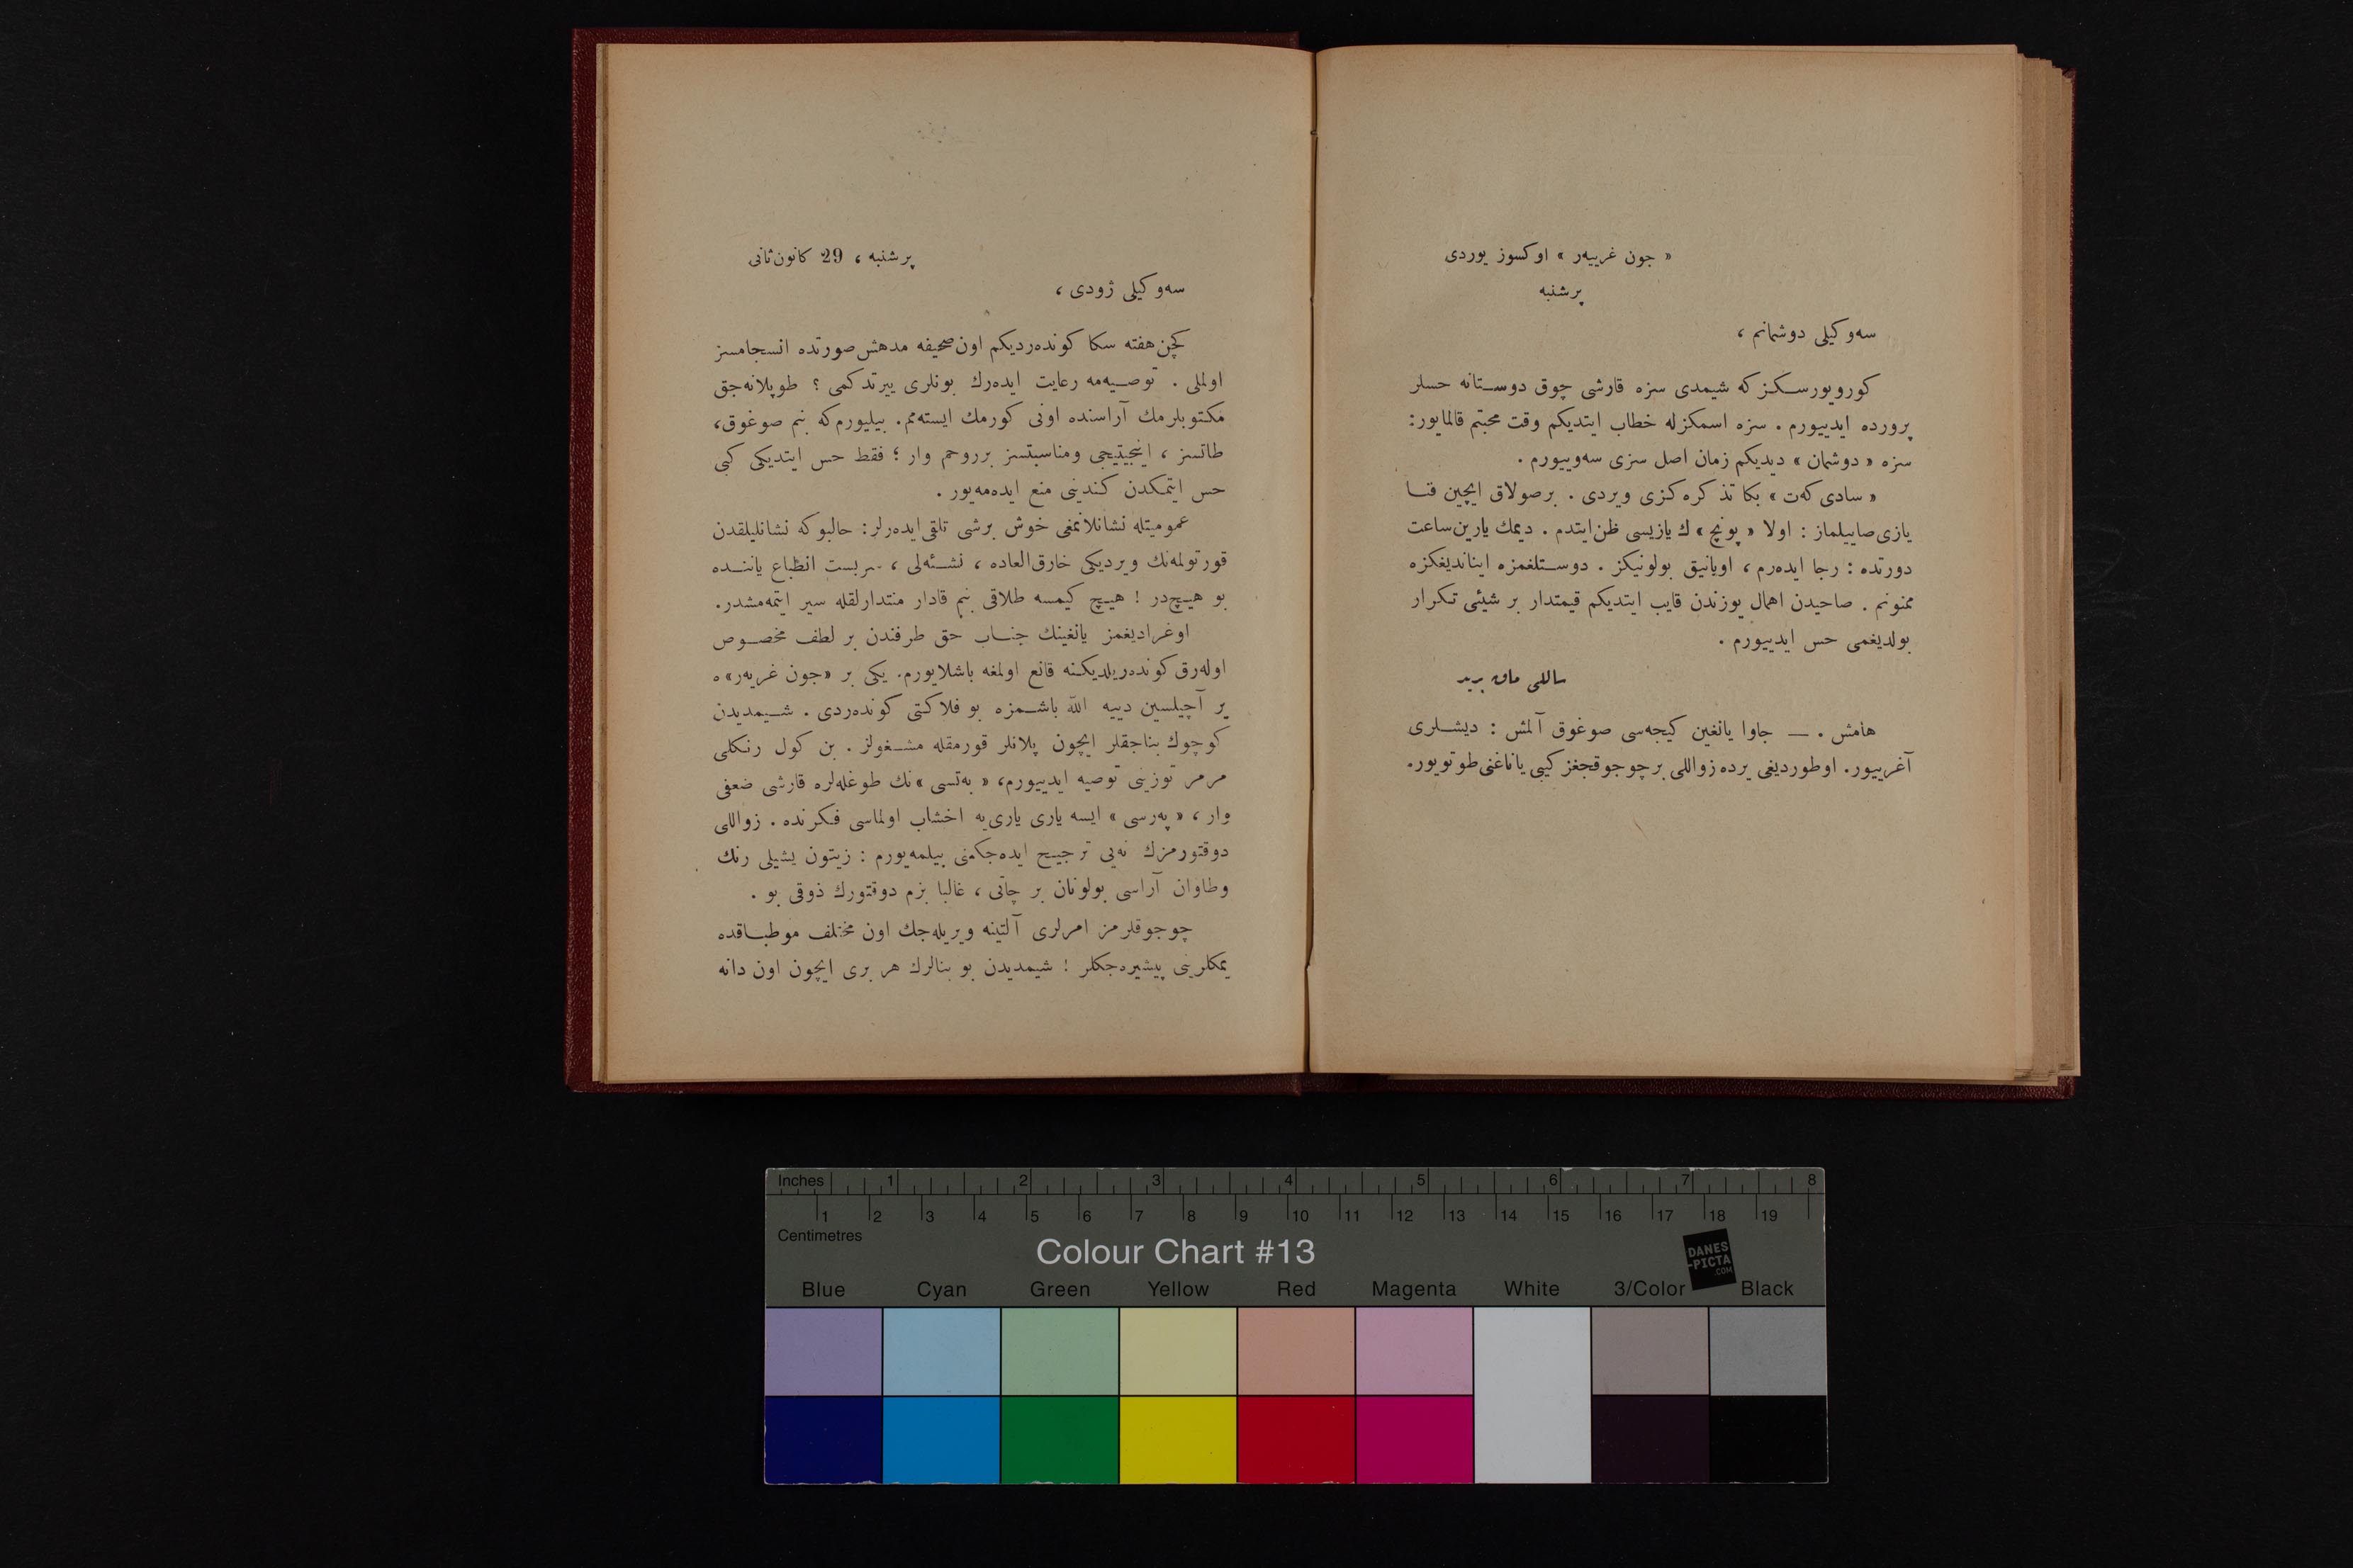 « جون غرییه‌ر » اوکسوز یوردی
پرشنبه
سه‌وکیلی دوشمانم ،
کورویورسکز که شیمدی سزه قارشی چوق دوستانه حسلر
پرورده ایدییورم . سزه اسمکزله خطاب ایتدیکم وقت محبتم قالمایور :
سزه « دوشمان » دیدیکم زمان اصل سزی سه‌وییورم .
« سادی که‌ت » بکا تذکره‌کزی ویردی . برصولاق ایچین فنا
یازی صاییلماز : اولا « پونچ » ك یازیسی ظن ایتدم . دیمك یارین ساعت
دورتده : رجا ایده‌رم ، اویانیق بولونیکز . دوستلغمزه ایناندیغکزه
ممنونم . صاحیدن اهمال یوزندن قایب ایتدیکم قیمتدار بر شیئی تکرار
بولدیغمی حس ایدییورم .
ساللی ماق برید
هامش . — جاوا یانغین کیجه‌سی صوغوق آلمش : دیشلری
آغرییور. اوطوردیغی یرده زواللی بر چوجوقجغز کیبی یاناغنی طوتویور.
پرشنبه ، 29 کانون ثانی
سه‌وکیلی ژودی ،
کچن هفته سکا کونده‌ردیکم اون صحیفه مدهش صورتده انسجامسز
اولملی . توصیه‌مه رعایت ایده‌رك بونلری ییرتدکمی ؟ طوپلانه‌جق
مکتوبلرمك آراسنده اونی کورمك ایسته‌مم. بیلیورم که بنم صوغوق،
طاتسز ، اینجیتیجی ومناسبتسز برروحم وار ؛ فقط حس ایتدیکی کبی
حس ایتمکدن کندینی منع ایده‌مه‌یور .
عمومیتله نشانلانمغی خوش برشی تلقی ایده‌رلر: حالبوکه نشانلیلقدن
قورتولمه‌نك ویردیکی خارق‌العاده ، نشئه‌لی ، سربست انطباع یاننده
بو هیچ‌در ! هیچ کیمسه طلاقی بنم قادار منتدارلقله سیر ایتمه‌مشدر.
اوغرادیغمز یانغینك جناب حق طرفندن بر لطف مخصوص
اوله‌رق کونده‌ریلدیکنه قانع اولمغه باشلایورم. یکی بر «جون غریه‌ر» ه
یر آچیلسین دییه الله باشمزه بو فلاکتی کونده‌ردی . شیمدیدن
کوچوك بناجقلر ایچون پلانلر قورمقله مشغولز . بن کول رنکلی
مرمر توزینی توصیه ایدییورم، « به‌تسی » نك طوغله‌لره قارشی ضعفی
وار ، « په‌رسی » ایسه یاری یاری‌یه اخشاب اولماسی فکرنده . زواللی
دوقتورمزك نه‌یی ترجیح ایده‌جکنی بیلمه‌یورم : زیتون یشیلی رنك
وطاوان آراسی بولونان بر چاتی ، غالبا بزم دوقتورك ذوقی بو .
چوجوقلرمز امرلری آلتینه ویریله‌جك اون مختلف موطباقده
یمکلرینی پیشیره‌جکلر ! شیمدیدن بو بنالرك هر بری ایچون اون دانه
Inches 1 2 3 4 5 6 7 8
1 2 3 4 5 6 7 8 9 10 11 12 13 14 15 16 17 18 19
Centimetres
Colour Chart #13
DANES
-PICTA
.COM
Blue Cyan Green Yellow Red Magenta White 3/Color Black